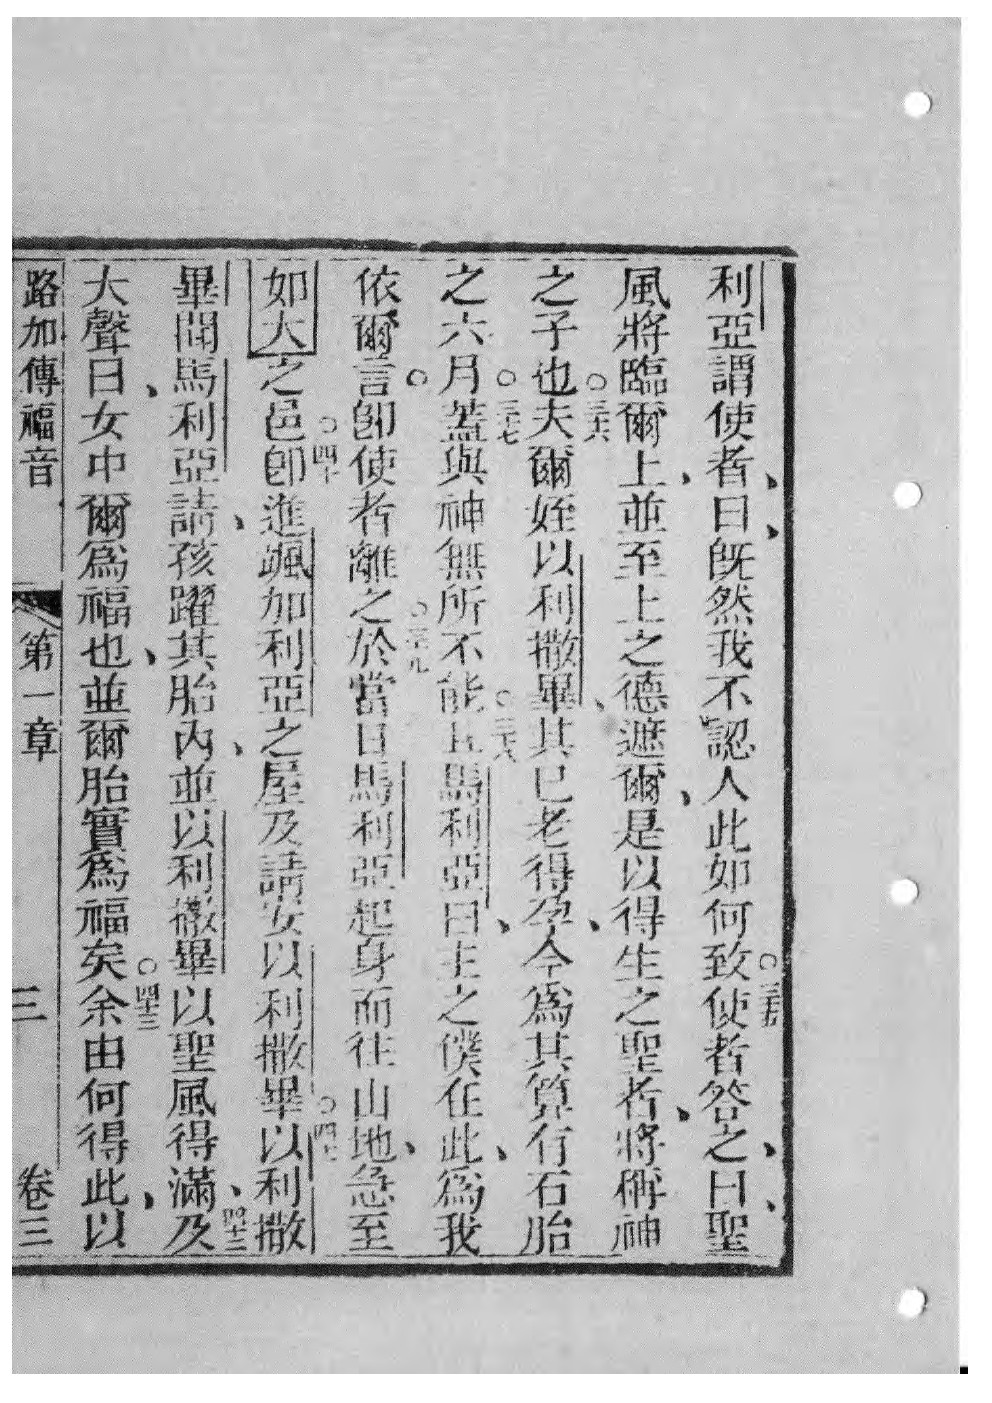 利亞謂使者曰既然我不認人此如何致○三十五使者答之曰聖
風將臨爾上並至上之德遮爾是以得生之聖者將稱神
之子也○三十六夫爾姪以利撒畢其已老得孕今爲其算行石胎
之六月○三十七蓋與神無所不能○三十八且馬利亞曰主之僕在此爲我
依爾言○卽使者離之○三十九於當日馬利亞起身而往山地急至
如大之邑○四十卽進颯加利亞之屋及請安以利撒畢○四一以利撒
畢聞馬利亞請孩躍其胎內並以利撒畢以聖風得滿四十二及
大聲曰女中爾爲福也並爾胎實爲福矣○四十三余由何得此以
路加傳福音 第一章 三 卷三